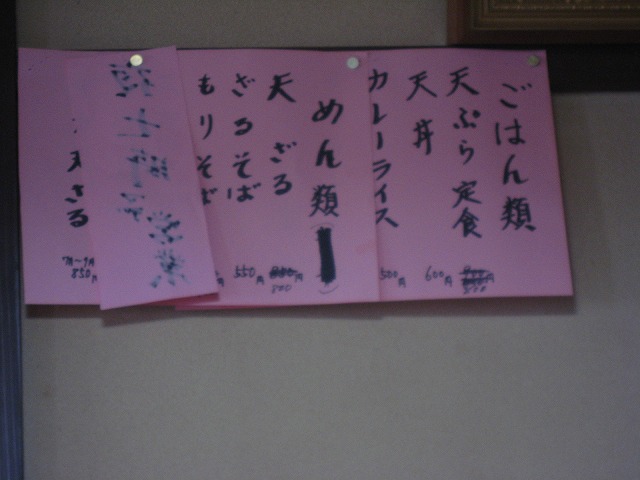 ごはん類
天ぷら定食
天丼 600円
カレーライス 500円
めん類
天ざる 800
ざるそば 550円
もりそば
天ざる
7月〜9月
850円
営業